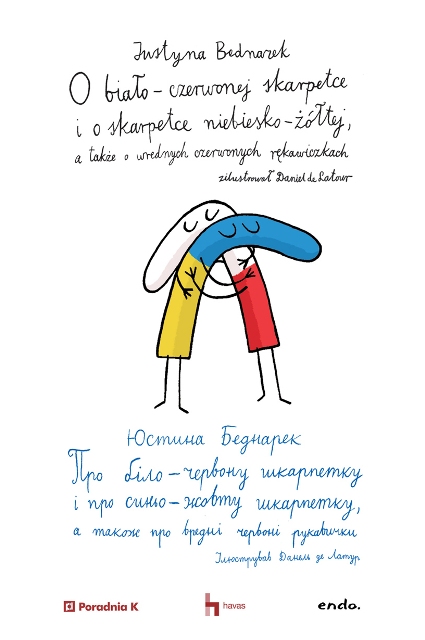 Justyna Bednarek
O biało-czerwonej skarpetce
i o skarpetce niebiesko-żółtej,
a także o wrednych czerwonych rękawiczkach
zilustrował Daniel de Latour
Юстина Беднарек
Про біло-червону шкарпетку
і про синьо-жовту шкарпетку,
а також про вредні червоні рукавички
Ілюстрував Даніель де Латур
Poradnia K
havas
endo.